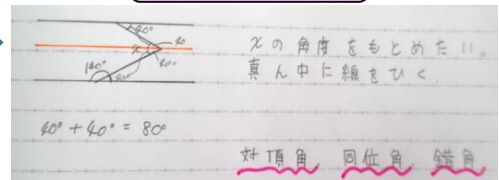 40°
x
40
140°
40°
xの角度をもとめたい。
真ん中に線をひく
40° + 40° = 80°
対頂角 同位角 錯角